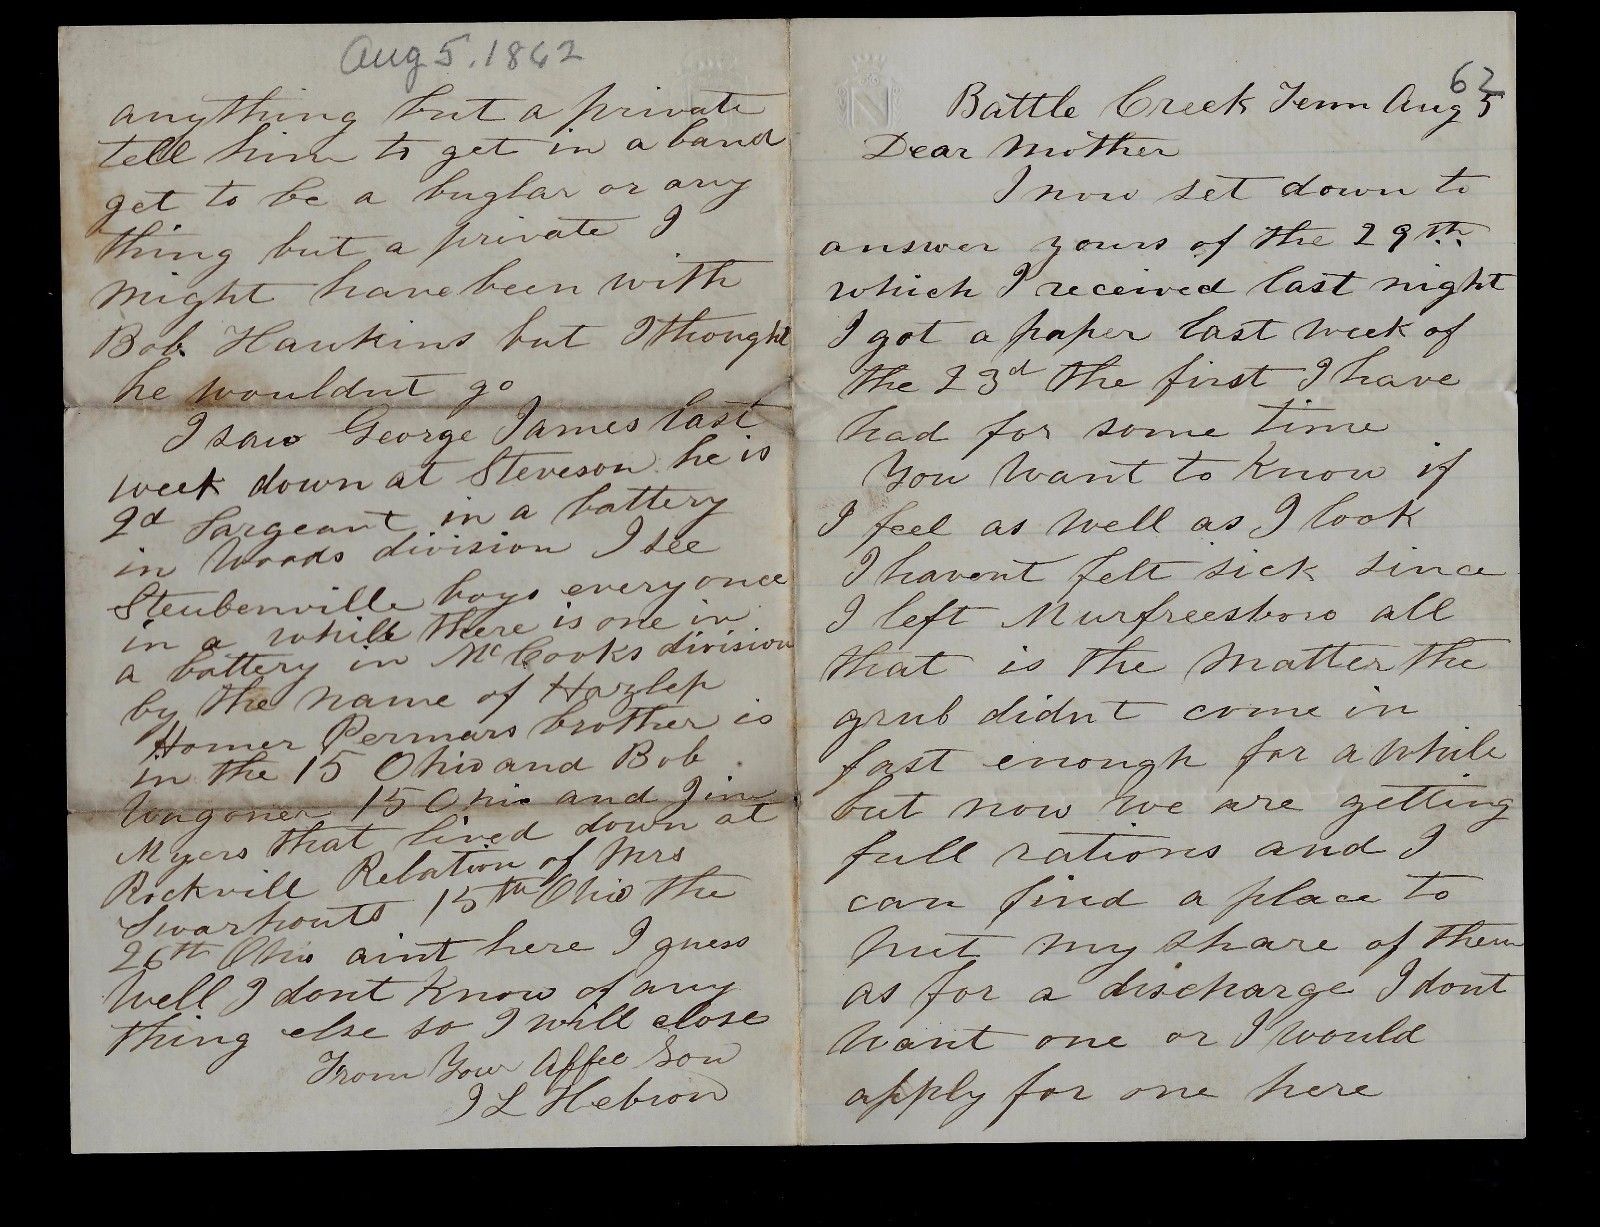 62
Battle Creek Tenn Aug 5
Dear Mother
I now set down to
answer yours of the 29th
which I received last night
I got a paper last week of
the 23d the first I have
had for some time
You want to know if
I feel as well as I look
I havent felt sick since
I left Murfreesboro all
that is the matter the
grub didnt come in
fast enough for a while
but now we are getting
full rations and I
can find a place to
put my share of them
as for a discharge I dont
want one or I would
apply for one here
Aug 5. 1862
anything but a private
tell him to get in a band
get to be a buglar or any
thing but a private I
might have been with
Bob Hawkins but I thought
he wouldnt go
I saw George James last
week down at Steveson he is
2d Sargeant in a battery
in Woods division I see
Steubenville boys every once
in a while there is one in
a battery in McCooks division
by the name of Hazlep
Homer Permars brother is
in the 15 Ohio and Bob
Wagoner 15 Ohio and Jim
Myers that lived down at
Rockvill Relation of Mrs
Swarhouts 15th Ohio the
26th Ohio aint here I guess
Well I dont know of any
thing else so I will close
From Your Affec Son
J L Hebron